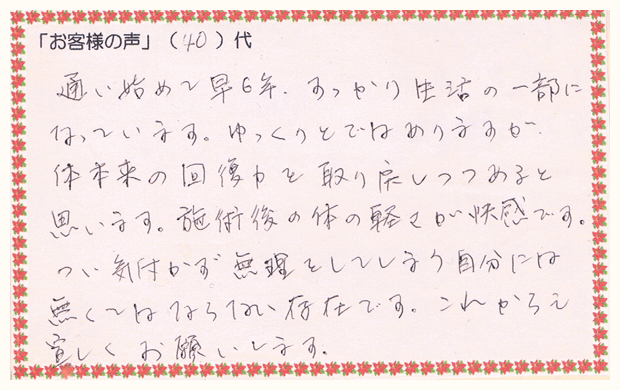 「お客様の声」（40）代
通い始めて早6年、すっかり生活の一部に
なっています。ゆっくりとではありますが、
体本来の回復力を取り戻しつつあると
思います。施術後の体の軽さが快感です。
つい気付かず無理をしてしまう自分には
無くてはならない存在です。これからも
宜しくお願いします。